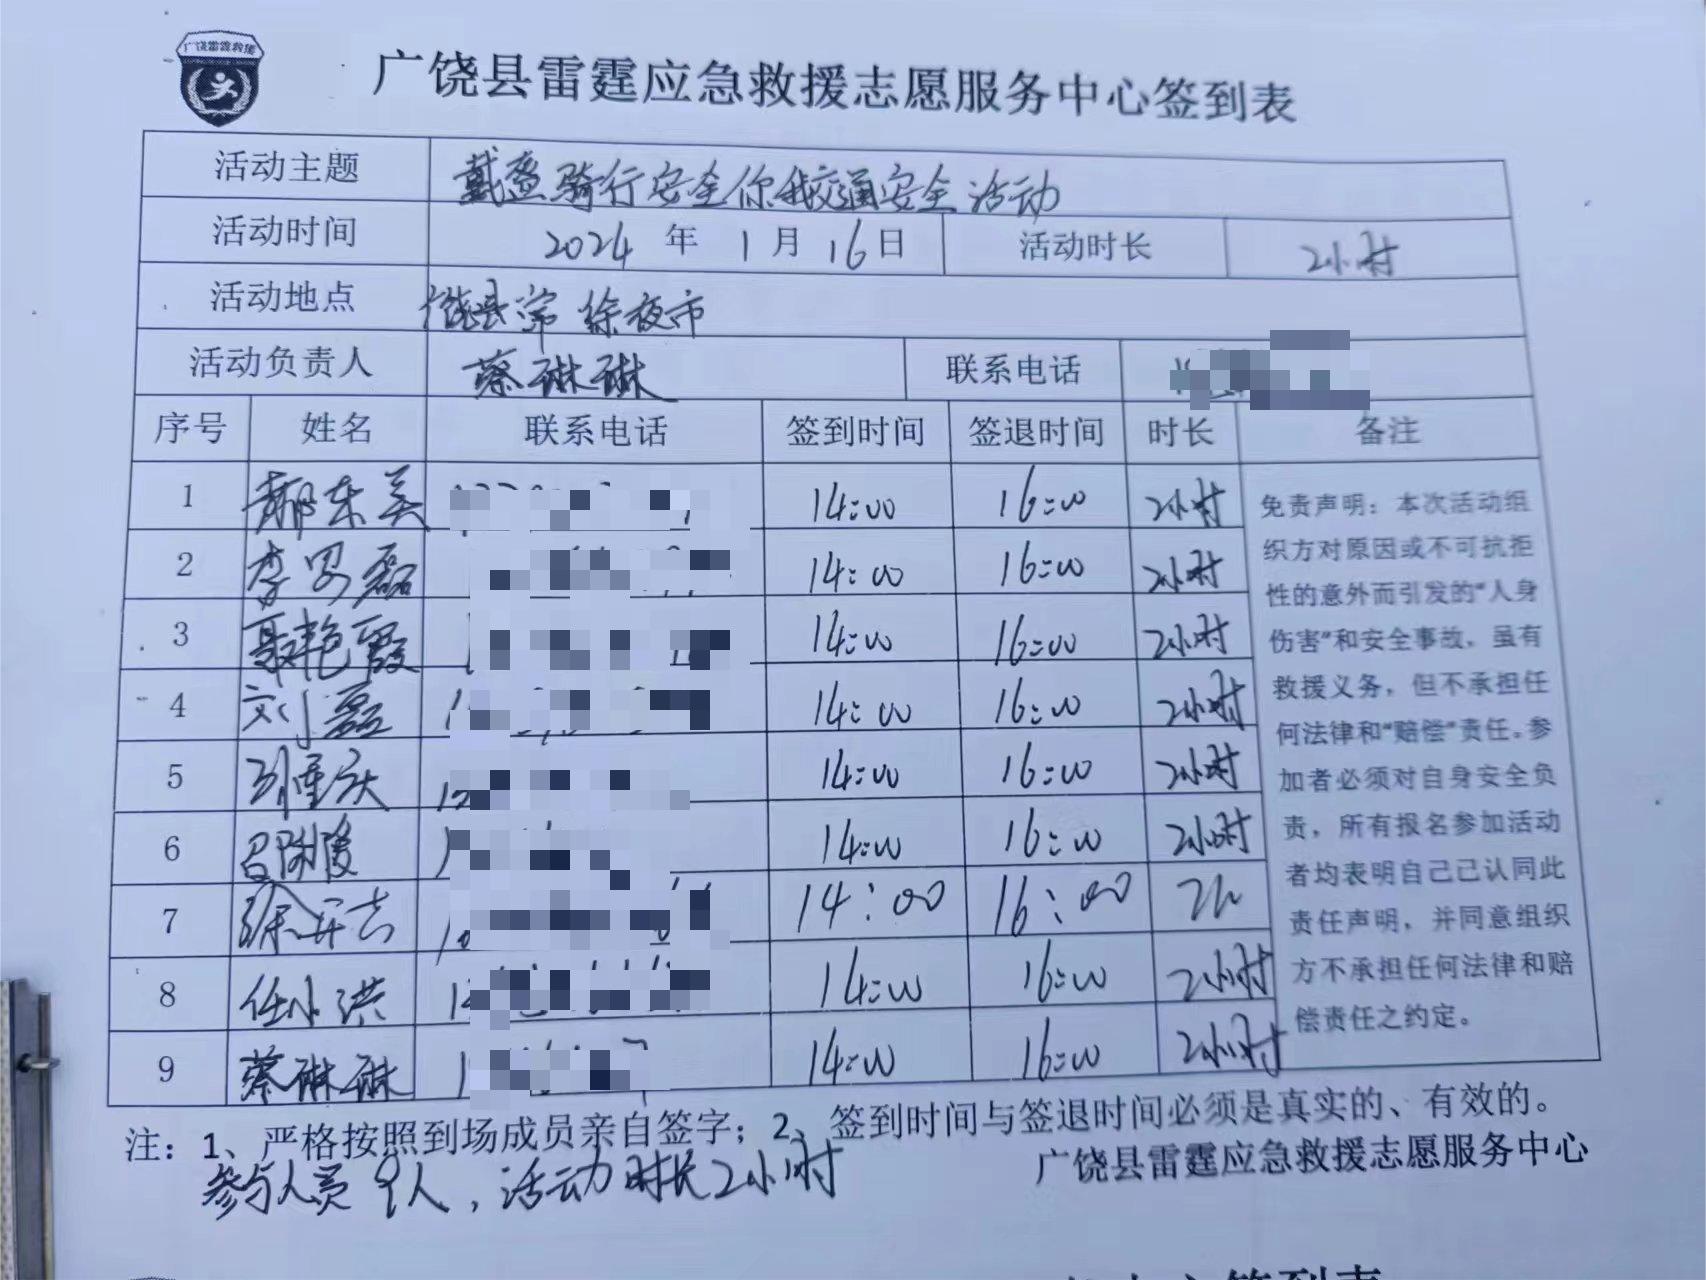 广饶雷霆救援
广饶县雷霆应急救援志愿服务中心签到表
活动主题 戴盔骑行安全你我交通安全活动
活动时间 2024 年 1 月 16 日 活动时长 2小时
活动地点 广饶县 徐夜市
活动负责人 蔡琳琳 联系电话
序号 姓名 联系电话 签到时间 签退时间 时长 备注
1 郝东美 14:00 16:00 2小时
2 李 磊 14:00 16:00 2小时
3 聂艳霞 14:00 16:00 2小时
4 刘磊 14:00 16:00 2小时
5 刘重庆 14:00 16:00 2小时
6 14:00 16:00 2小时
7 徐开吉 14:00 16:00 2h
8 任小洪 14:00 16:00 2小时
9 蔡琳琳 14:00 16:00 2小时
免责声明：本次活动组
织方对原因或不可抗拒
性的意外而引发的“人身
伤害”和安全事故，虽有
救援义务，但不承担任
何法律和“赔偿”责任。参
加者必须对自身安全负
责，所有报名参加活动
者均表明自己已认同此
责任声明，并同意组织
方不承担任何法律和赔
偿责任之约定。
注：1、严格按照到场成员亲自签字；2、签到时间与签退时间必须是真实的、有效的。
参与人员9人，活动时长2小时
广饶县雷霆应急救援志愿服务中心